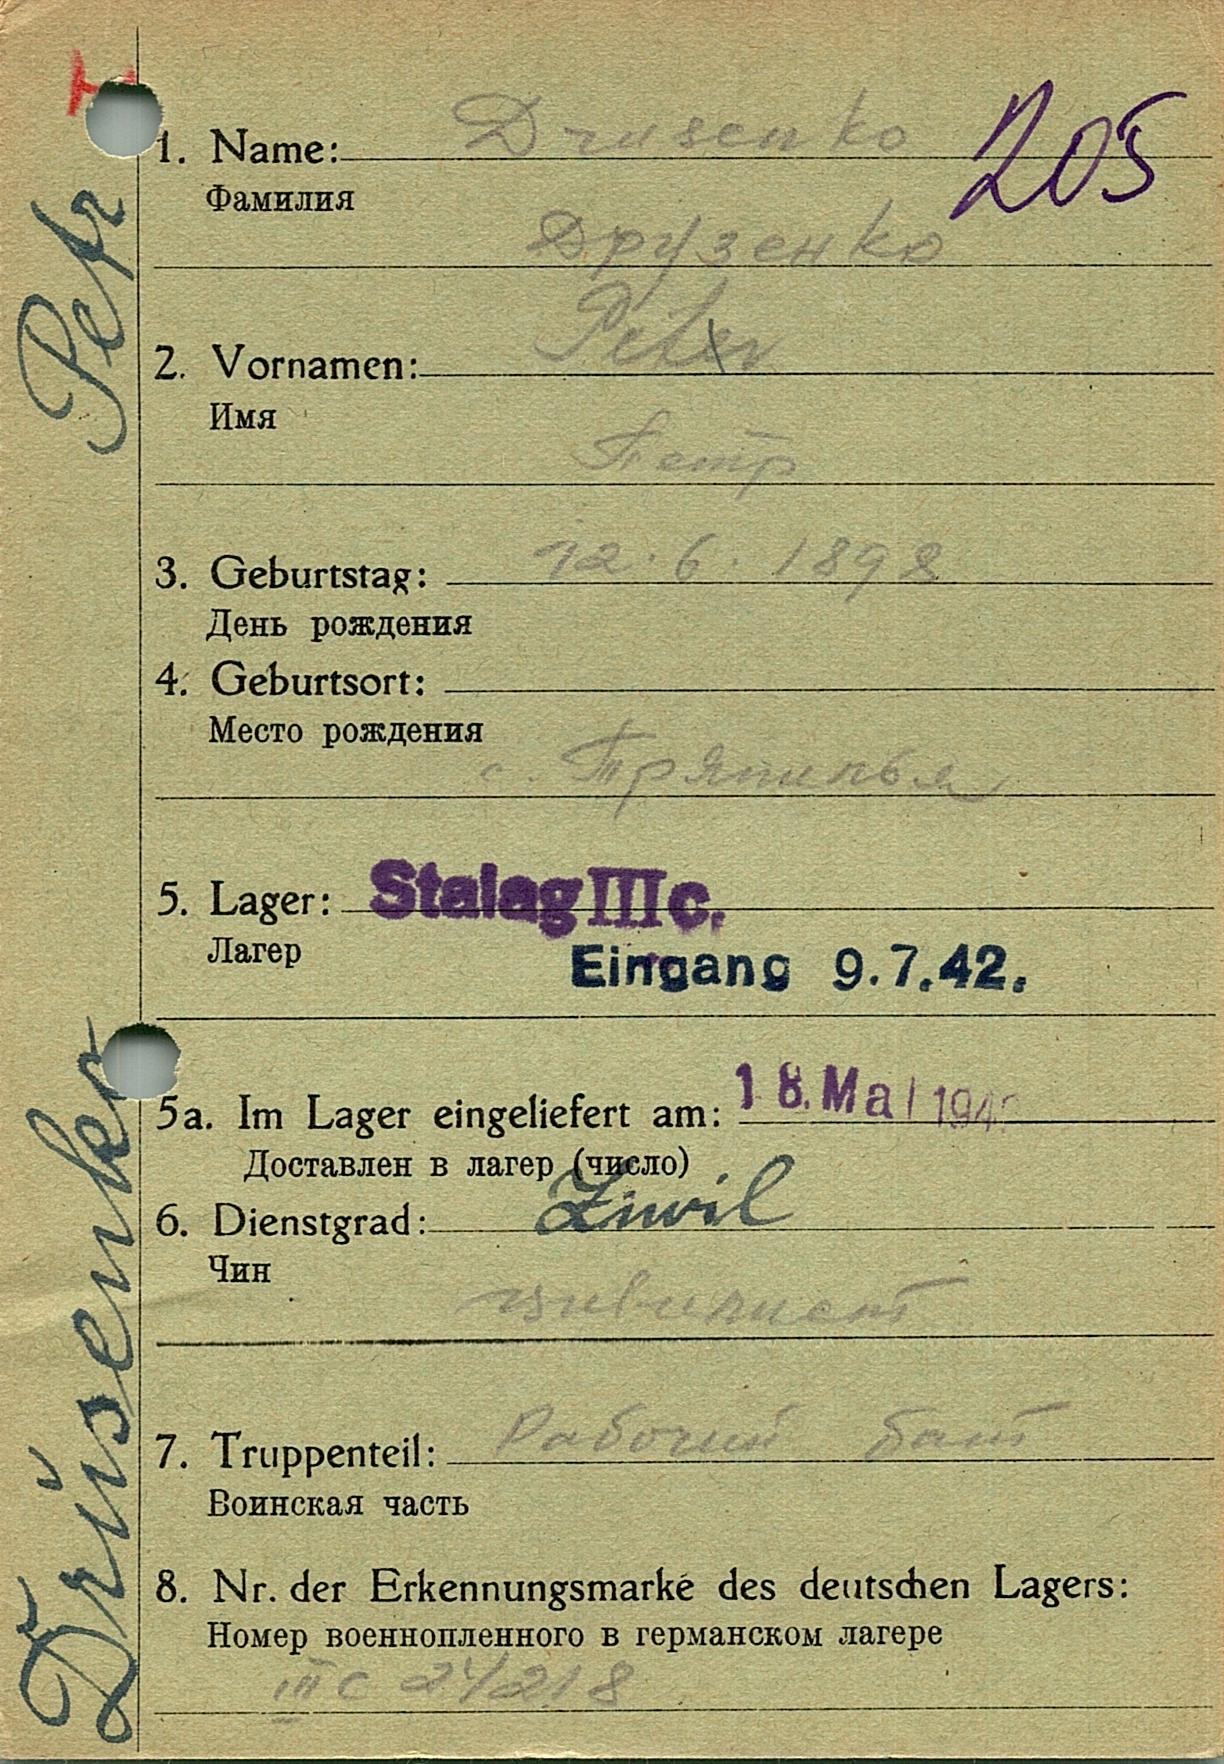 Petr
Drusenko
205
1. Name: Drusenko
Фамилия
Друзенко
2. Vornamen: Peter
Имя
Петр
3. Geburtstag: 12.6.1898
День рождения
4. Geburtsort:
Место рождения
с.
5. Lager: Stalag III c.
Лагер
Eingang 9.7.42.
5a. Im Lager eingeliefert am: 18. Mai 194
Доставлен в лагер (число)
6. Dienstgrad: Ziwil
Чин
цивилист
7. Truppenteil: Рабочий бат
Воинская часть
8. Nr. der Erkennungsmarke des deutschen Lagers:
Номер военнопленного в германском лагере
III C 24218